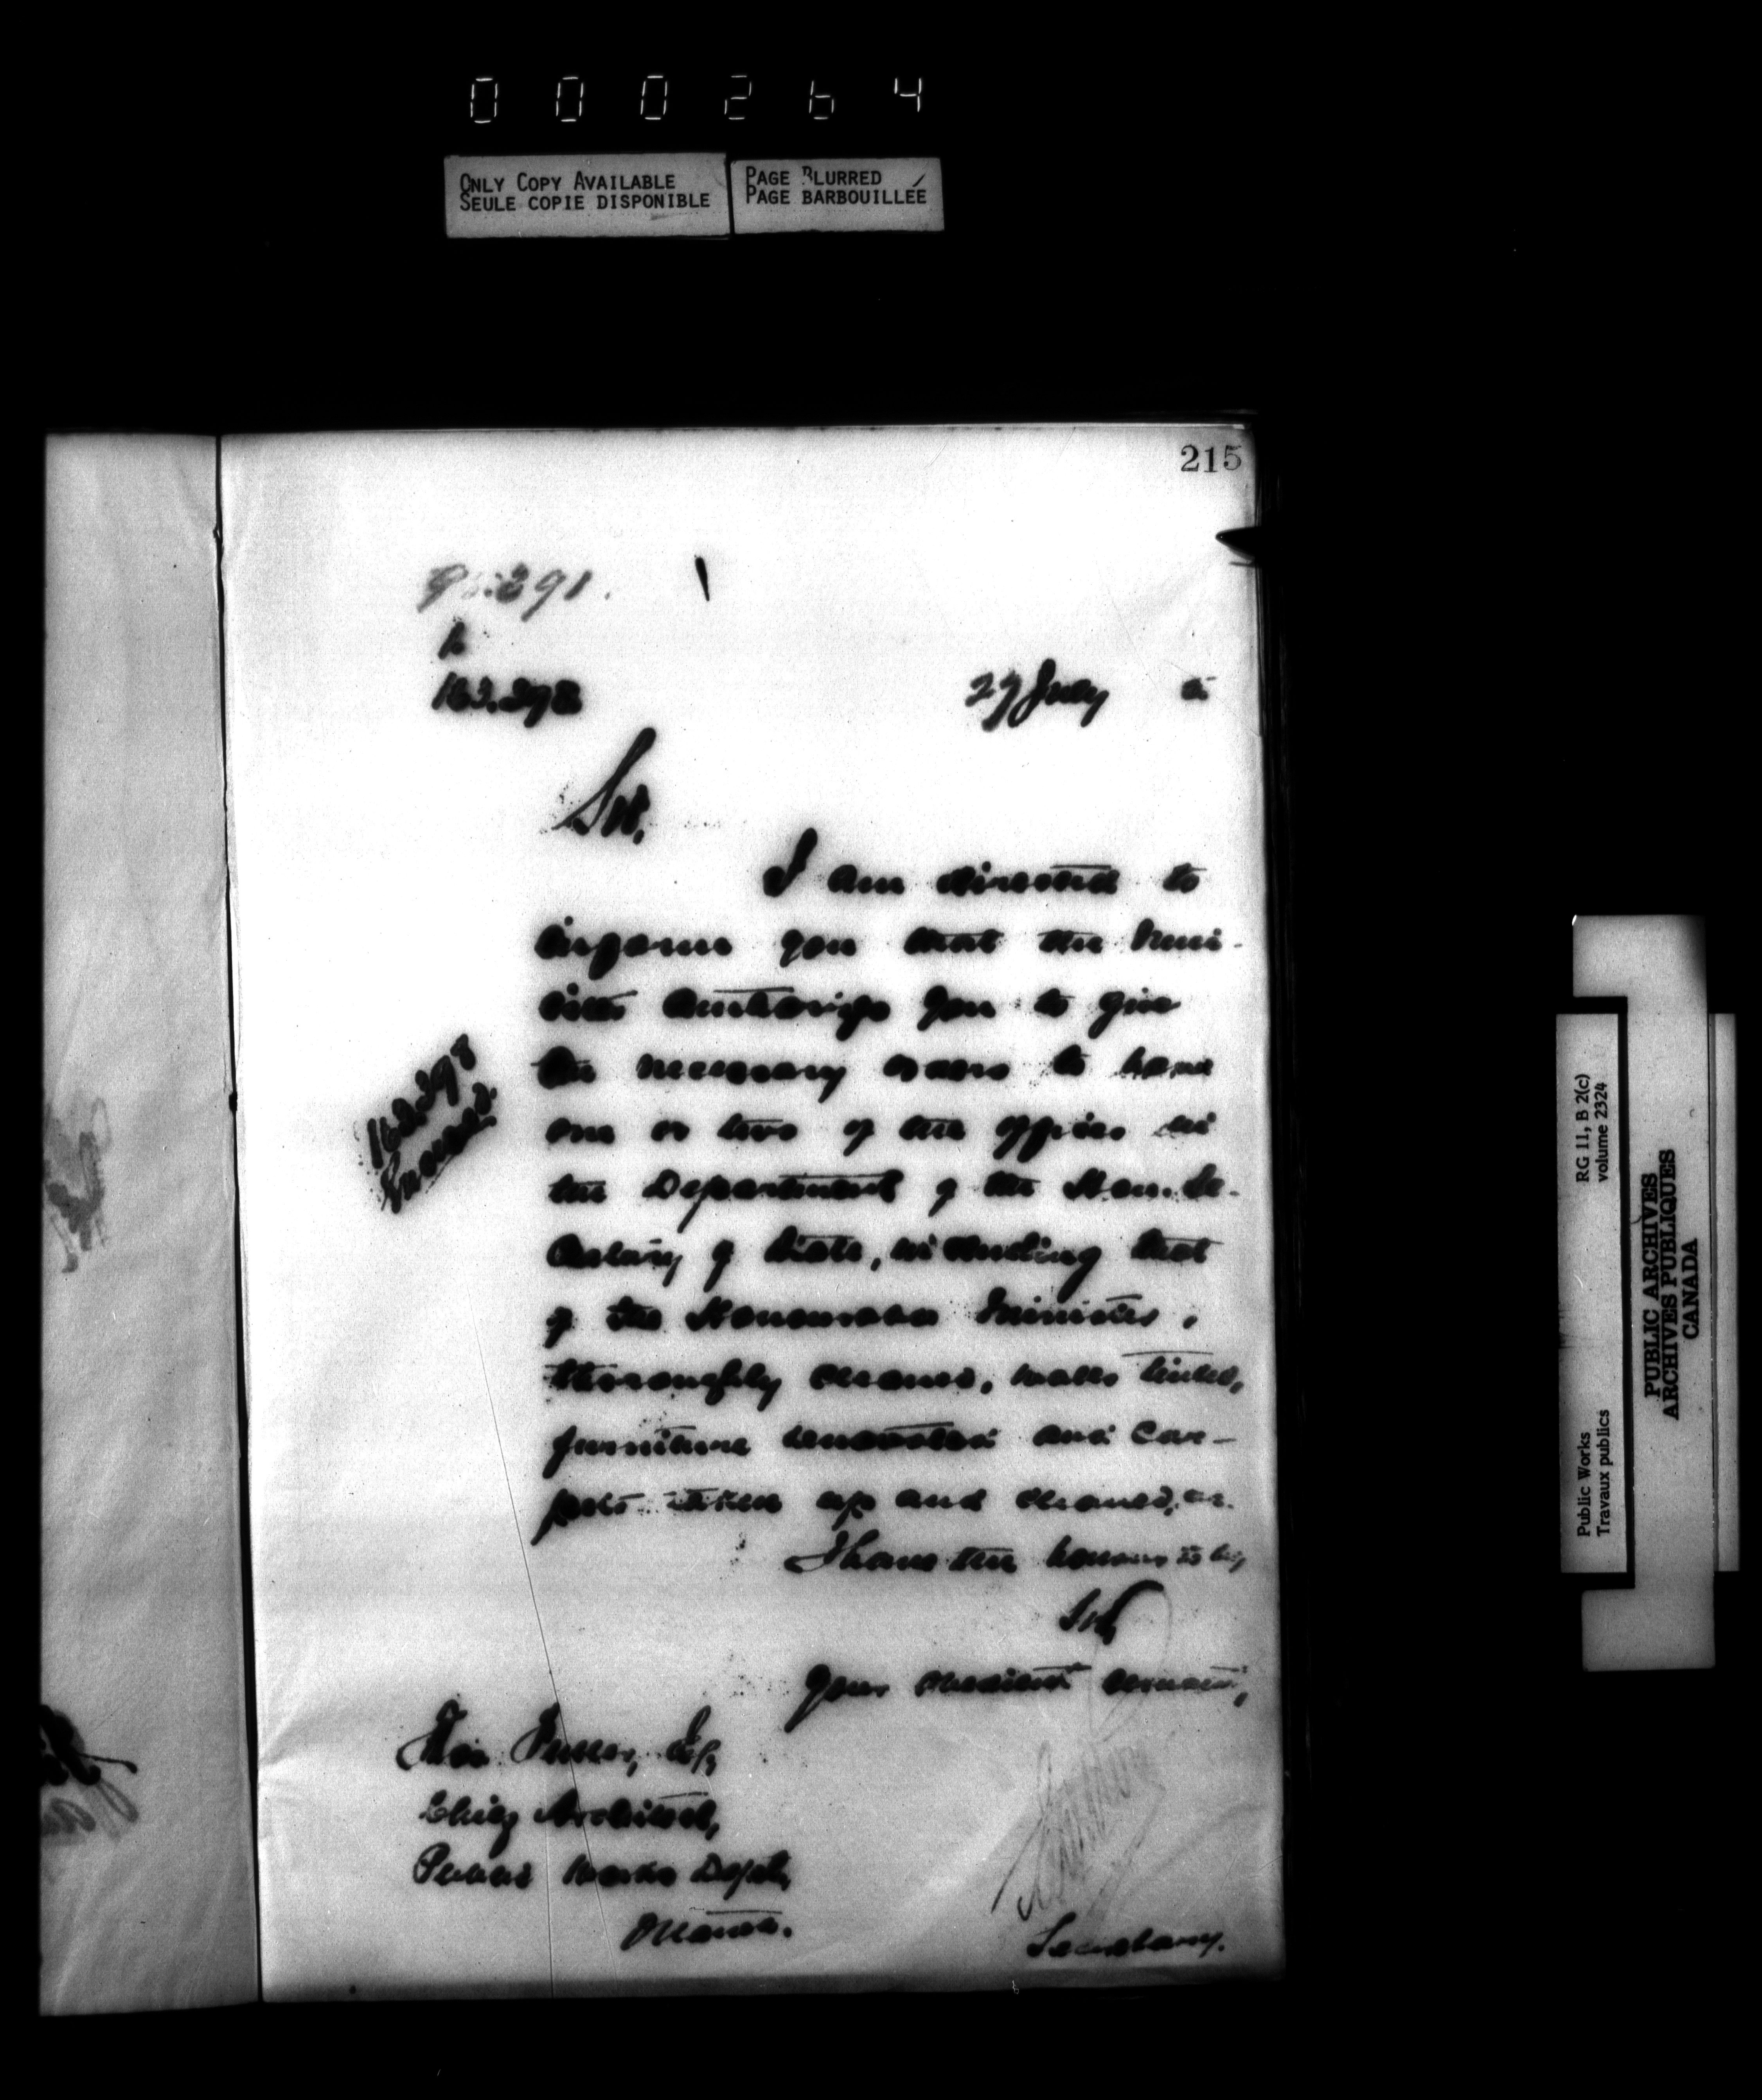 000264
ONLY COPY AVAILABLE
SEULE COPIE DISPONIBLE
PAGE BLURRED
PAGE BARBOUILLÉE
215
163.398
27 July
Sir,
I am directed to
inform you that the Mini-
ster authorizes you to give
the necessary orders to have
one or two of the offices in
the Department of the Hon. Se-
cretary of State, including that
of the Honourable Minister,
thoroughly cleaned, walls tinted,
furniture renovated and car-
pets taken up and cleaned,
I have the honour to be,
Sir,
Your obedient servant,
Thos Fuller, Esq,
Chief Architect,
Public Works Dept,
Ottawa.
Secretary.
Public Works
Travaux publics
RG 11, B 2(c)
volume 2324
PUBLIC ARCHIVES
ARCHIVES PUBLIQUES
CANADA